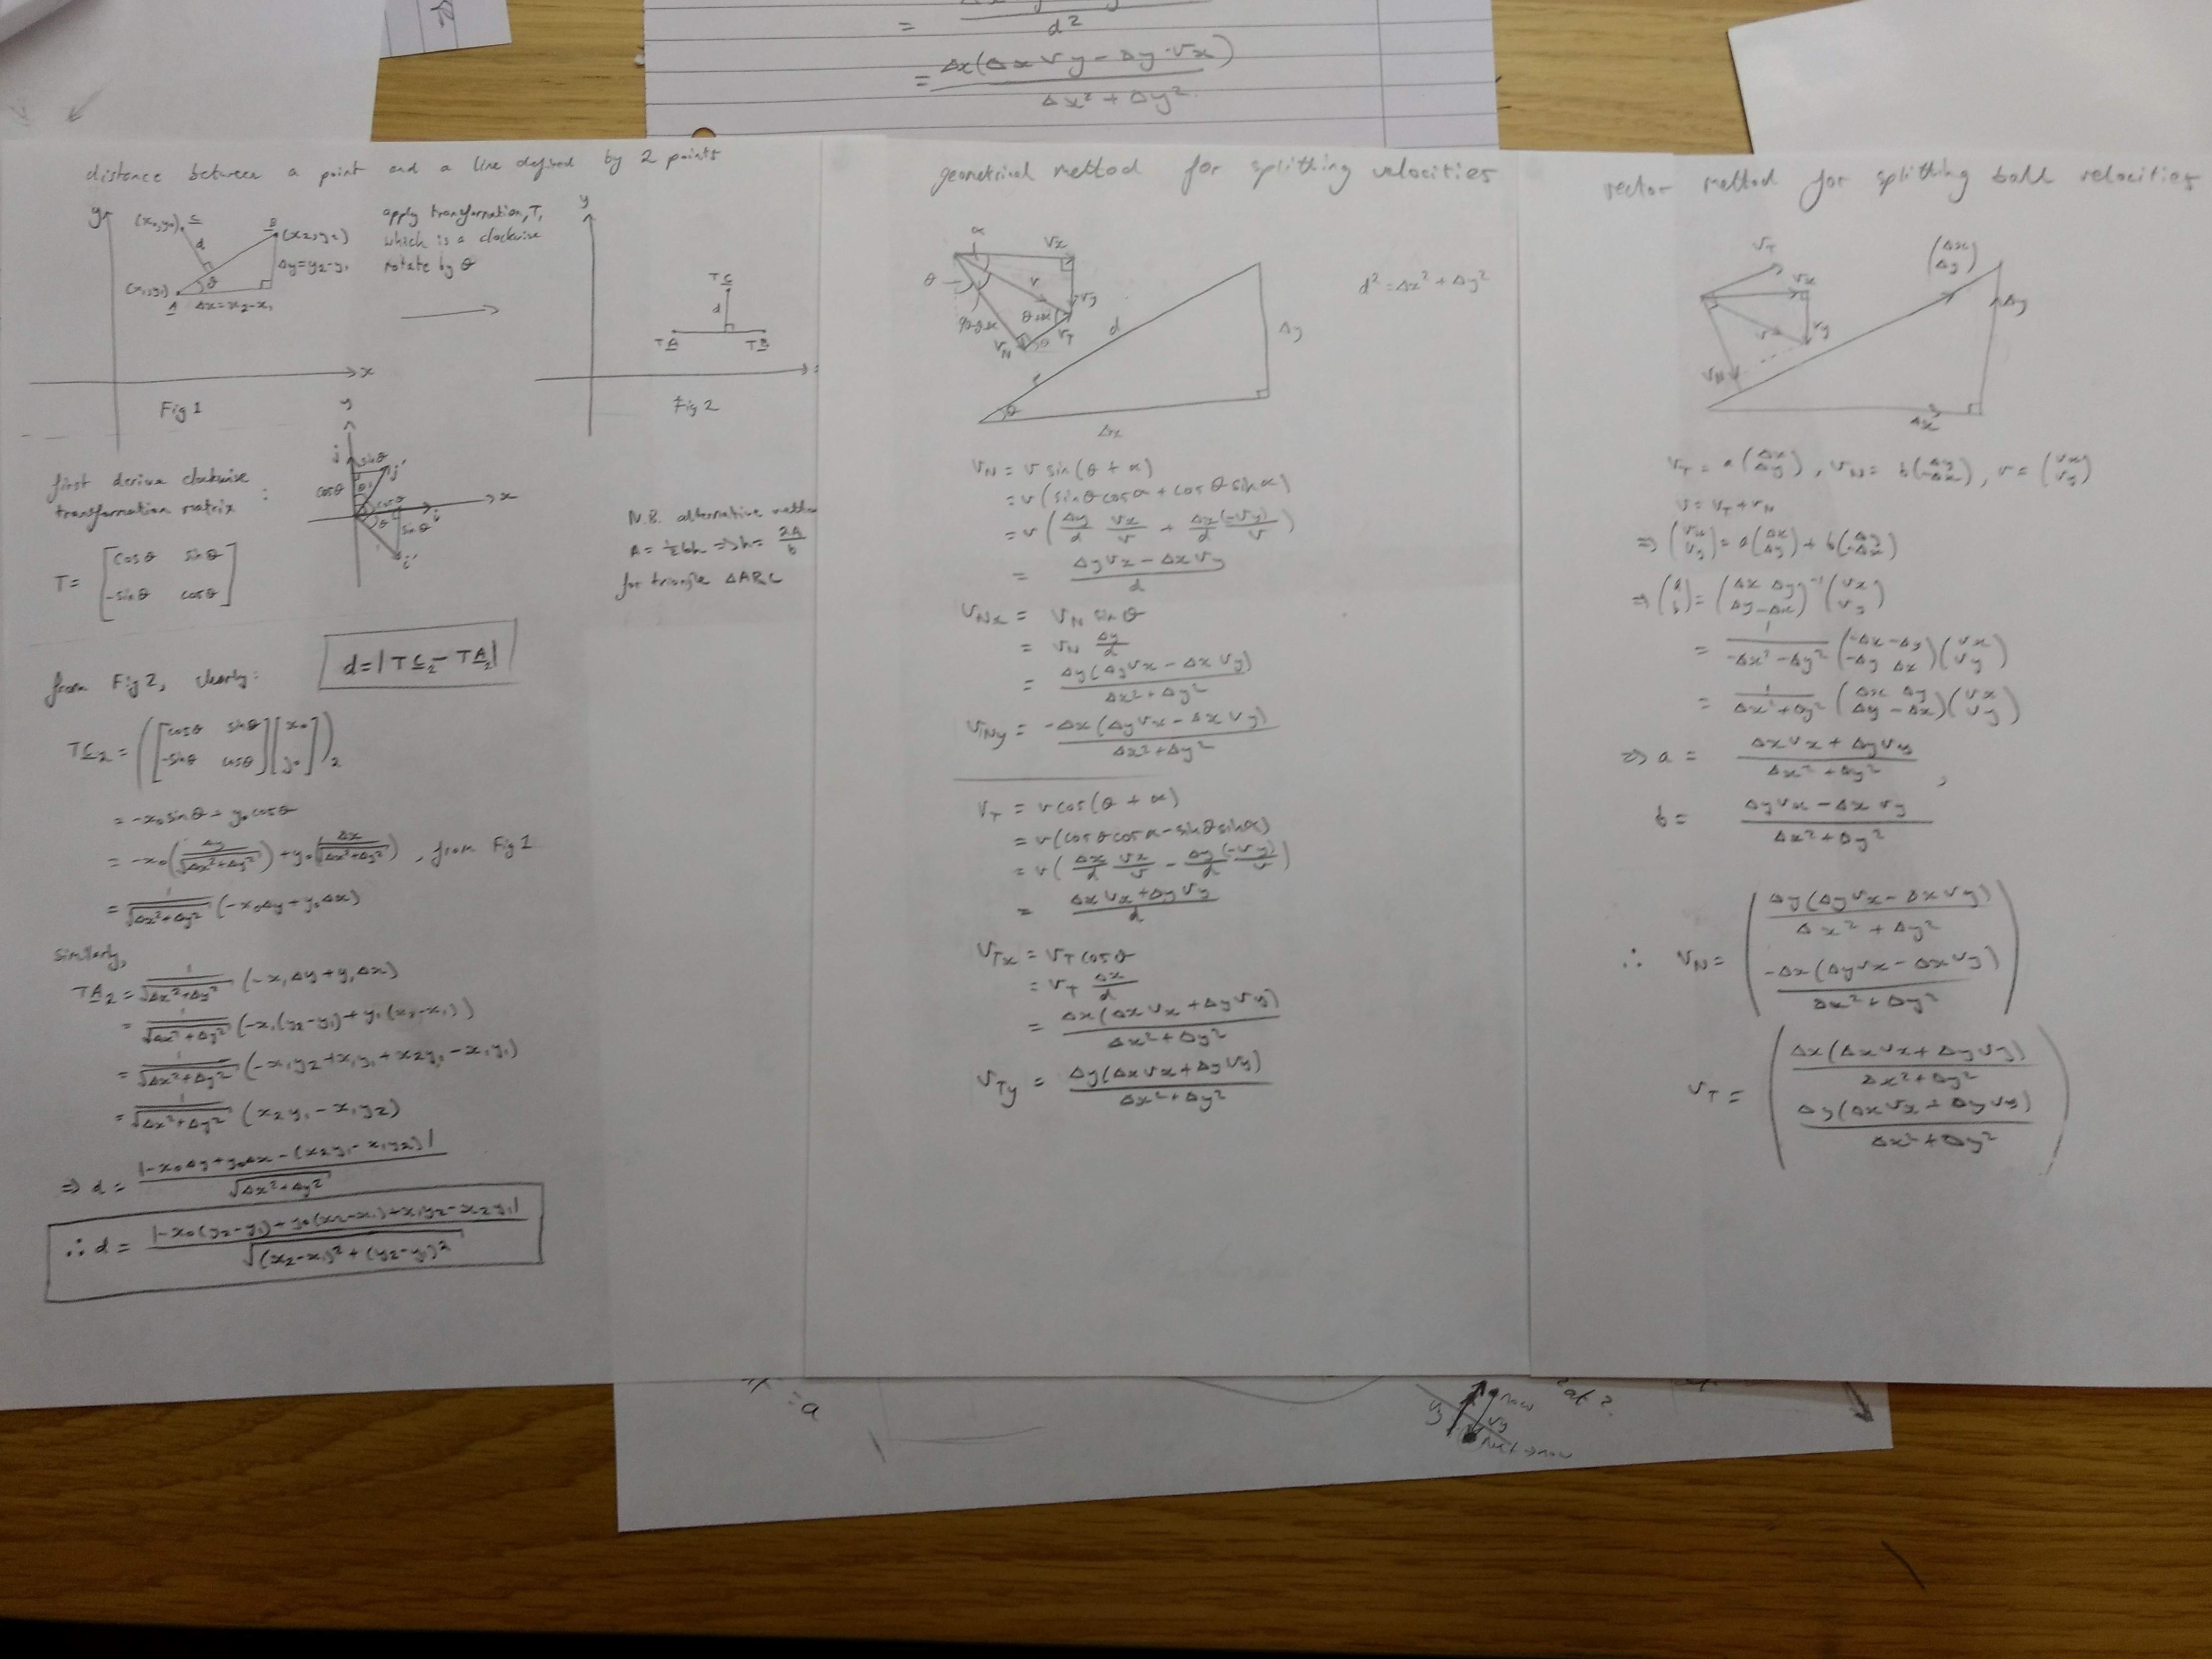 = d²
= Δx(Δx vy - Δy·vx) / Δx² + Δy²
distance between a point and a line defined by 2 points
y
(x₀,y₀) C
B (x₂,y₂)
d
θ
Δy=y₂-y₁
(x₁,y₁)
A Δx=x₂-x₁
x
Fig 1
apply transformation, T,
which is a clockwise
rotate by θ
y
TC
d
TA TB
Fig 2
first derive clockwise
transformation matrix :
T = [cosθ sinθ
-sinθ cosθ]
y
j sinθ j'
cosθ θ cosθ x
θ i
sinθ
i'
N.B. alternative metho
A = ½bh => h = 2A/b
for triangle ΔABC
from Fig 2, clearly:
d = |TC₂ - TA₂|
TC₂ = ([cosθ sinθ
-sinθ cosθ][x₀
y₀])₂
= -x₀sinθ + y₀cosθ
= -x₀(Δy/√Δx²+Δy²) + y₀(Δx/√Δx²+Δy²), from Fig 1
= 1/√Δx²+Δy² (-x₀Δy + y₀Δx)
similarly,
TA₂ = 1/√Δx²+Δy² (-x₁Δy + y₁Δx)
= 1/√Δx²+Δy² (-x₁(y₂-y₁) + y₁(x₂-x₁))
= 1/√Δx²+Δy² (-x₁y₂ + x₁y₁ + x₂y₁ - x₁y₁)
= 1/√Δx²+Δy² (x₂y₁ - x₁y₂)
=> d = |-x₀Δy + y₀Δx - (x₂y₁ - x₁y₂)| / √Δx²+Δy²
∴ d = |-x₀(y₂-y₁) + y₀(x₂-x₁) + x₁y₂ - x₂y₁| / √(x₂-x₁)² + (y₂-y₁)²
geometrical method for splitting velocities
α vx
θ v vy
90-θ-α θ+α
vN θ vT d
Δy
θ
Δx
d² = Δx² + Δy²
vN = v sin(θ + α)
= v(sinθcosα + cosθsinα)
= v(Δy/d vx/v + Δx/d (-vy)/v)
= Δyvx - Δxvy / d
vNx = vN sinθ
= vN Δy/d
= Δy(Δyvx - Δxvy) / Δx² + Δy²
vNy = -Δx(Δyvx - Δxvy) / Δx² + Δy²
vT = v cos(θ + α)
= v(cosθcosα - sinθsinα)
= v(Δx/d vx/v - Δy/d (-vy)/v)
= Δxvx + Δyvy / d
vTx = vT cosθ
= vT Δx/d
= Δx(Δxvx + Δyvy) / Δx² + Δy²
vTy = Δy(Δxvx + Δyvy) / Δx² + Δy²
vector method for splitting ball velocities
vT
vx
(Δx
Δy)
v vy
vN
Δy
Δx
vT = a(Δx
Δy), vN = b(Δy
-Δx), v = (vx
vy)
v = vT + vN
=> (vx
vy) = a(Δx
Δy) + b(Δy
-Δx)
=> (a
b) = (Δx Δy
Δy -Δx)⁻¹(vx
vy)
= 1/-Δx²-Δy² (-Δx -Δy
-Δy Δx)(vx
vy)
= 1/Δx²+Δy² (Δx Δy
Δy -Δx)(vx
vy)
=> a = Δxvx + Δyvy / Δx² + Δy²,
b = Δyvx - Δxvy / Δx² + Δy²
∴ vN = (Δy(Δyvx - Δxvy) / Δx² + Δy²
-Δx(Δyvx - Δxvy) / Δx² + Δy²)
vT = (Δx(Δxvx + Δyvy) / Δx² + Δy²
Δy(Δxvx + Δyvy) / Δx² + Δy²)
= a
now
vy